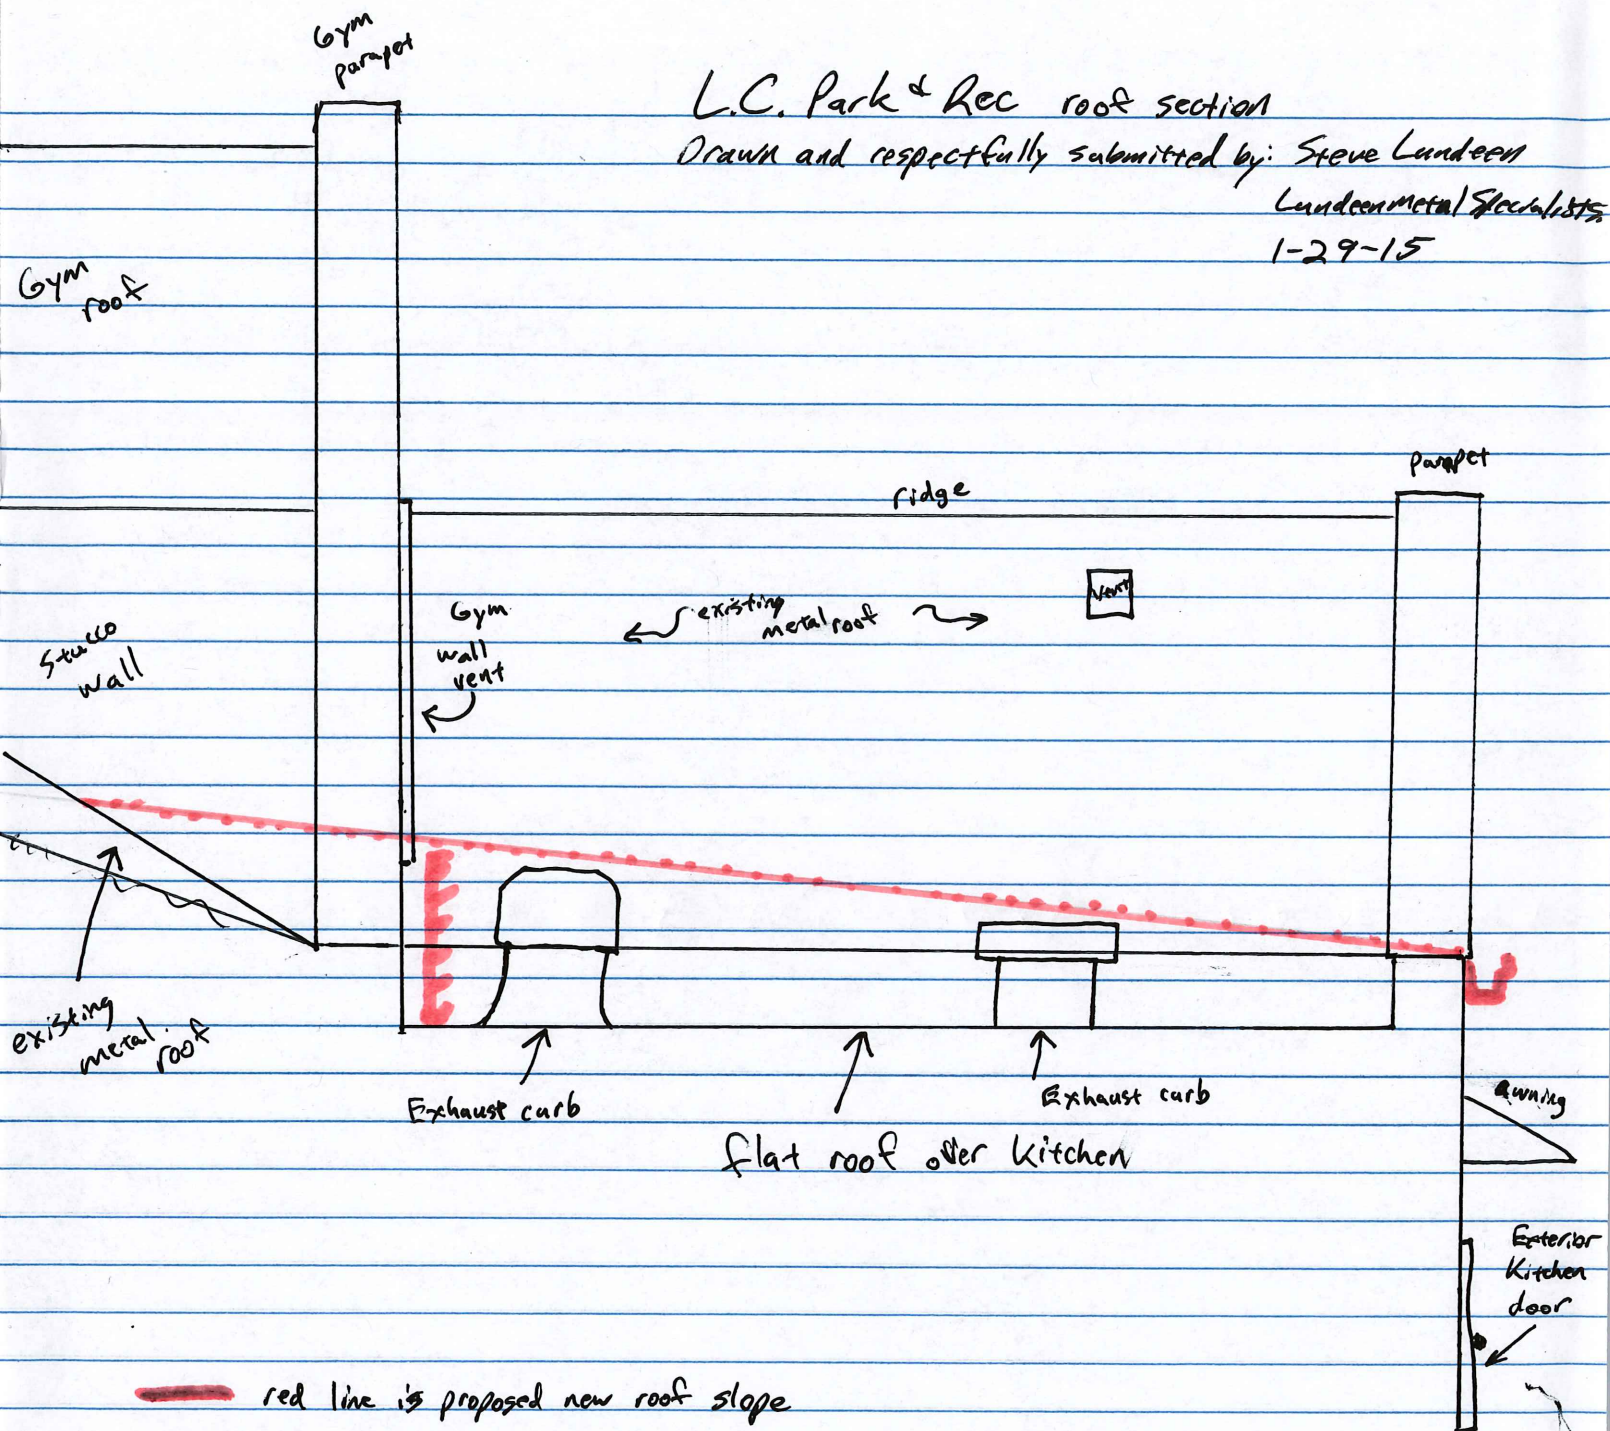 Gym
parapet
L.C. Park & Rec roof section
Drawn and respectfully submitted by: Steve Lundeen
Lundeen Metal Specialists
1-29-15
Gym
roof
parapet
ridge
vent
existing
metal roof
Gym
wall
vent
stucco
wall
existing
metal roof
Exhaust curb
Exhaust curb
flat roof over kitchen
awning
Exterior
Kitchen
door
red line is proposed new roof slope